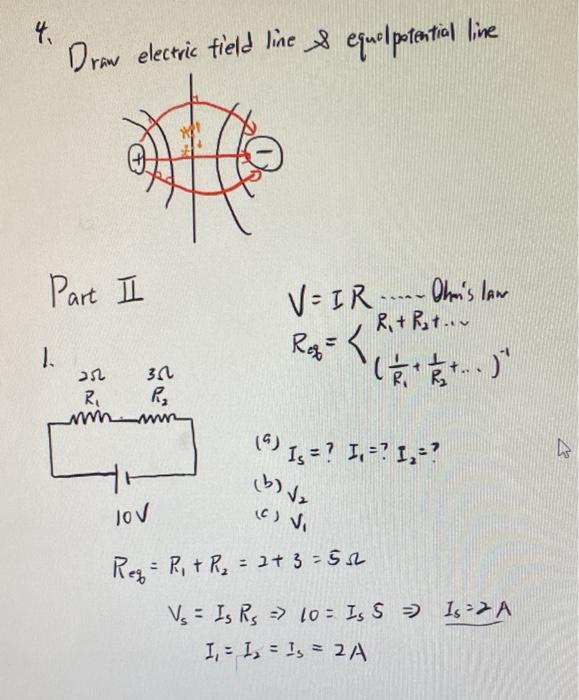 4.
Draw electric field line & equalpotential line
+ −
Part II
V = I R ..... Ohm's law
Req = < R₁ + R₂ + ...
(1/R₁ + 1/R₂ + ...)⁻¹
1.
2Ω 3Ω
R₁ R₂
10V
(a) Is = ? I₁ = ? I₂ = ?
(b) V₂
(c) V₁
Req = R₁ + R₂ = 2 + 3 = 5 Ω
Vs = Is Rs ⇒ 10 = Is 5 ⇒ Is = 2 A
I₁ = I₂ = Is = 2A